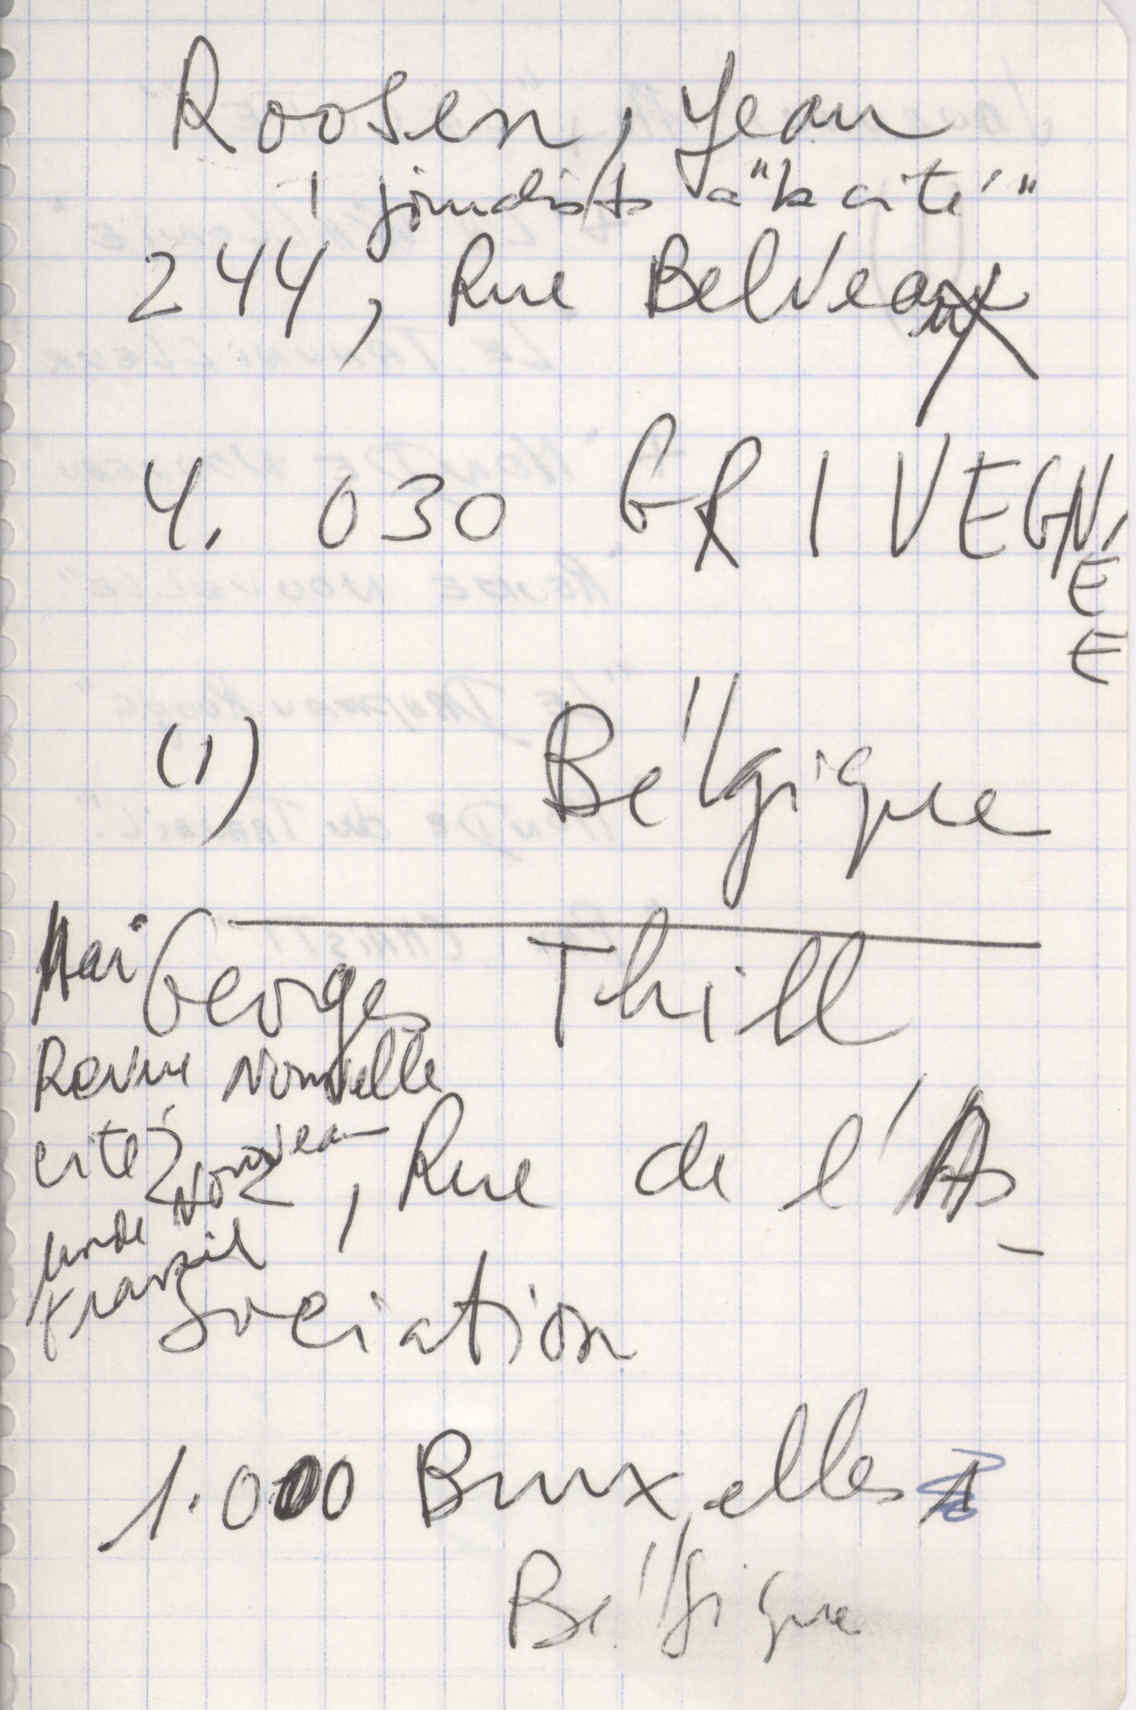 Roosen, Jean
1 journaliste à "la cité"
244, Rue Belveaux
4. 030 GRIVEGN,
E
E
(1) Bélgique
Georges Thill
Revue Nouvelle
cité
22, Rue de l'As-
Nouveau
travail
sociation
1.000 Bruxelles
Bélgique